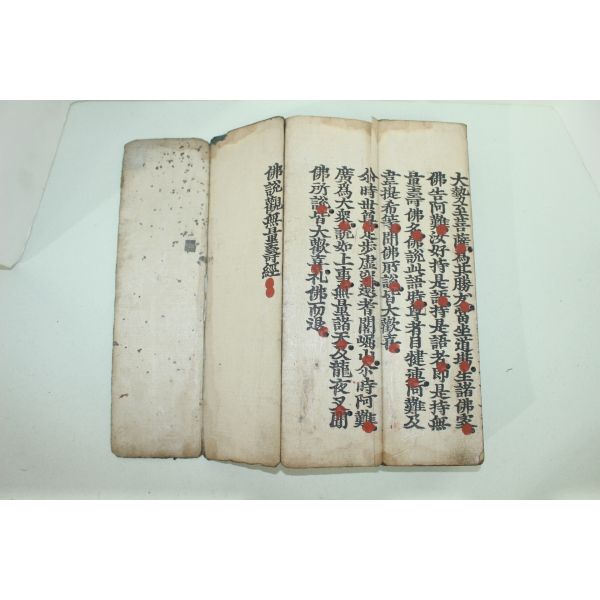 大勢至菩薩為其勝友當坐道場生諸佛家
佛告阿難汝好持是語持是語者即是持無
量壽佛名佛說此語時尊者目犍連阿難及
韋提希等聞佛所說皆大歡喜
尒時世尊足步虛空還耆闍崛山尒時阿難
廣為大衆說如上事無量諸天及龍夜叉聞
佛所說皆大歡喜礼佛而退
佛說觀無量壽經